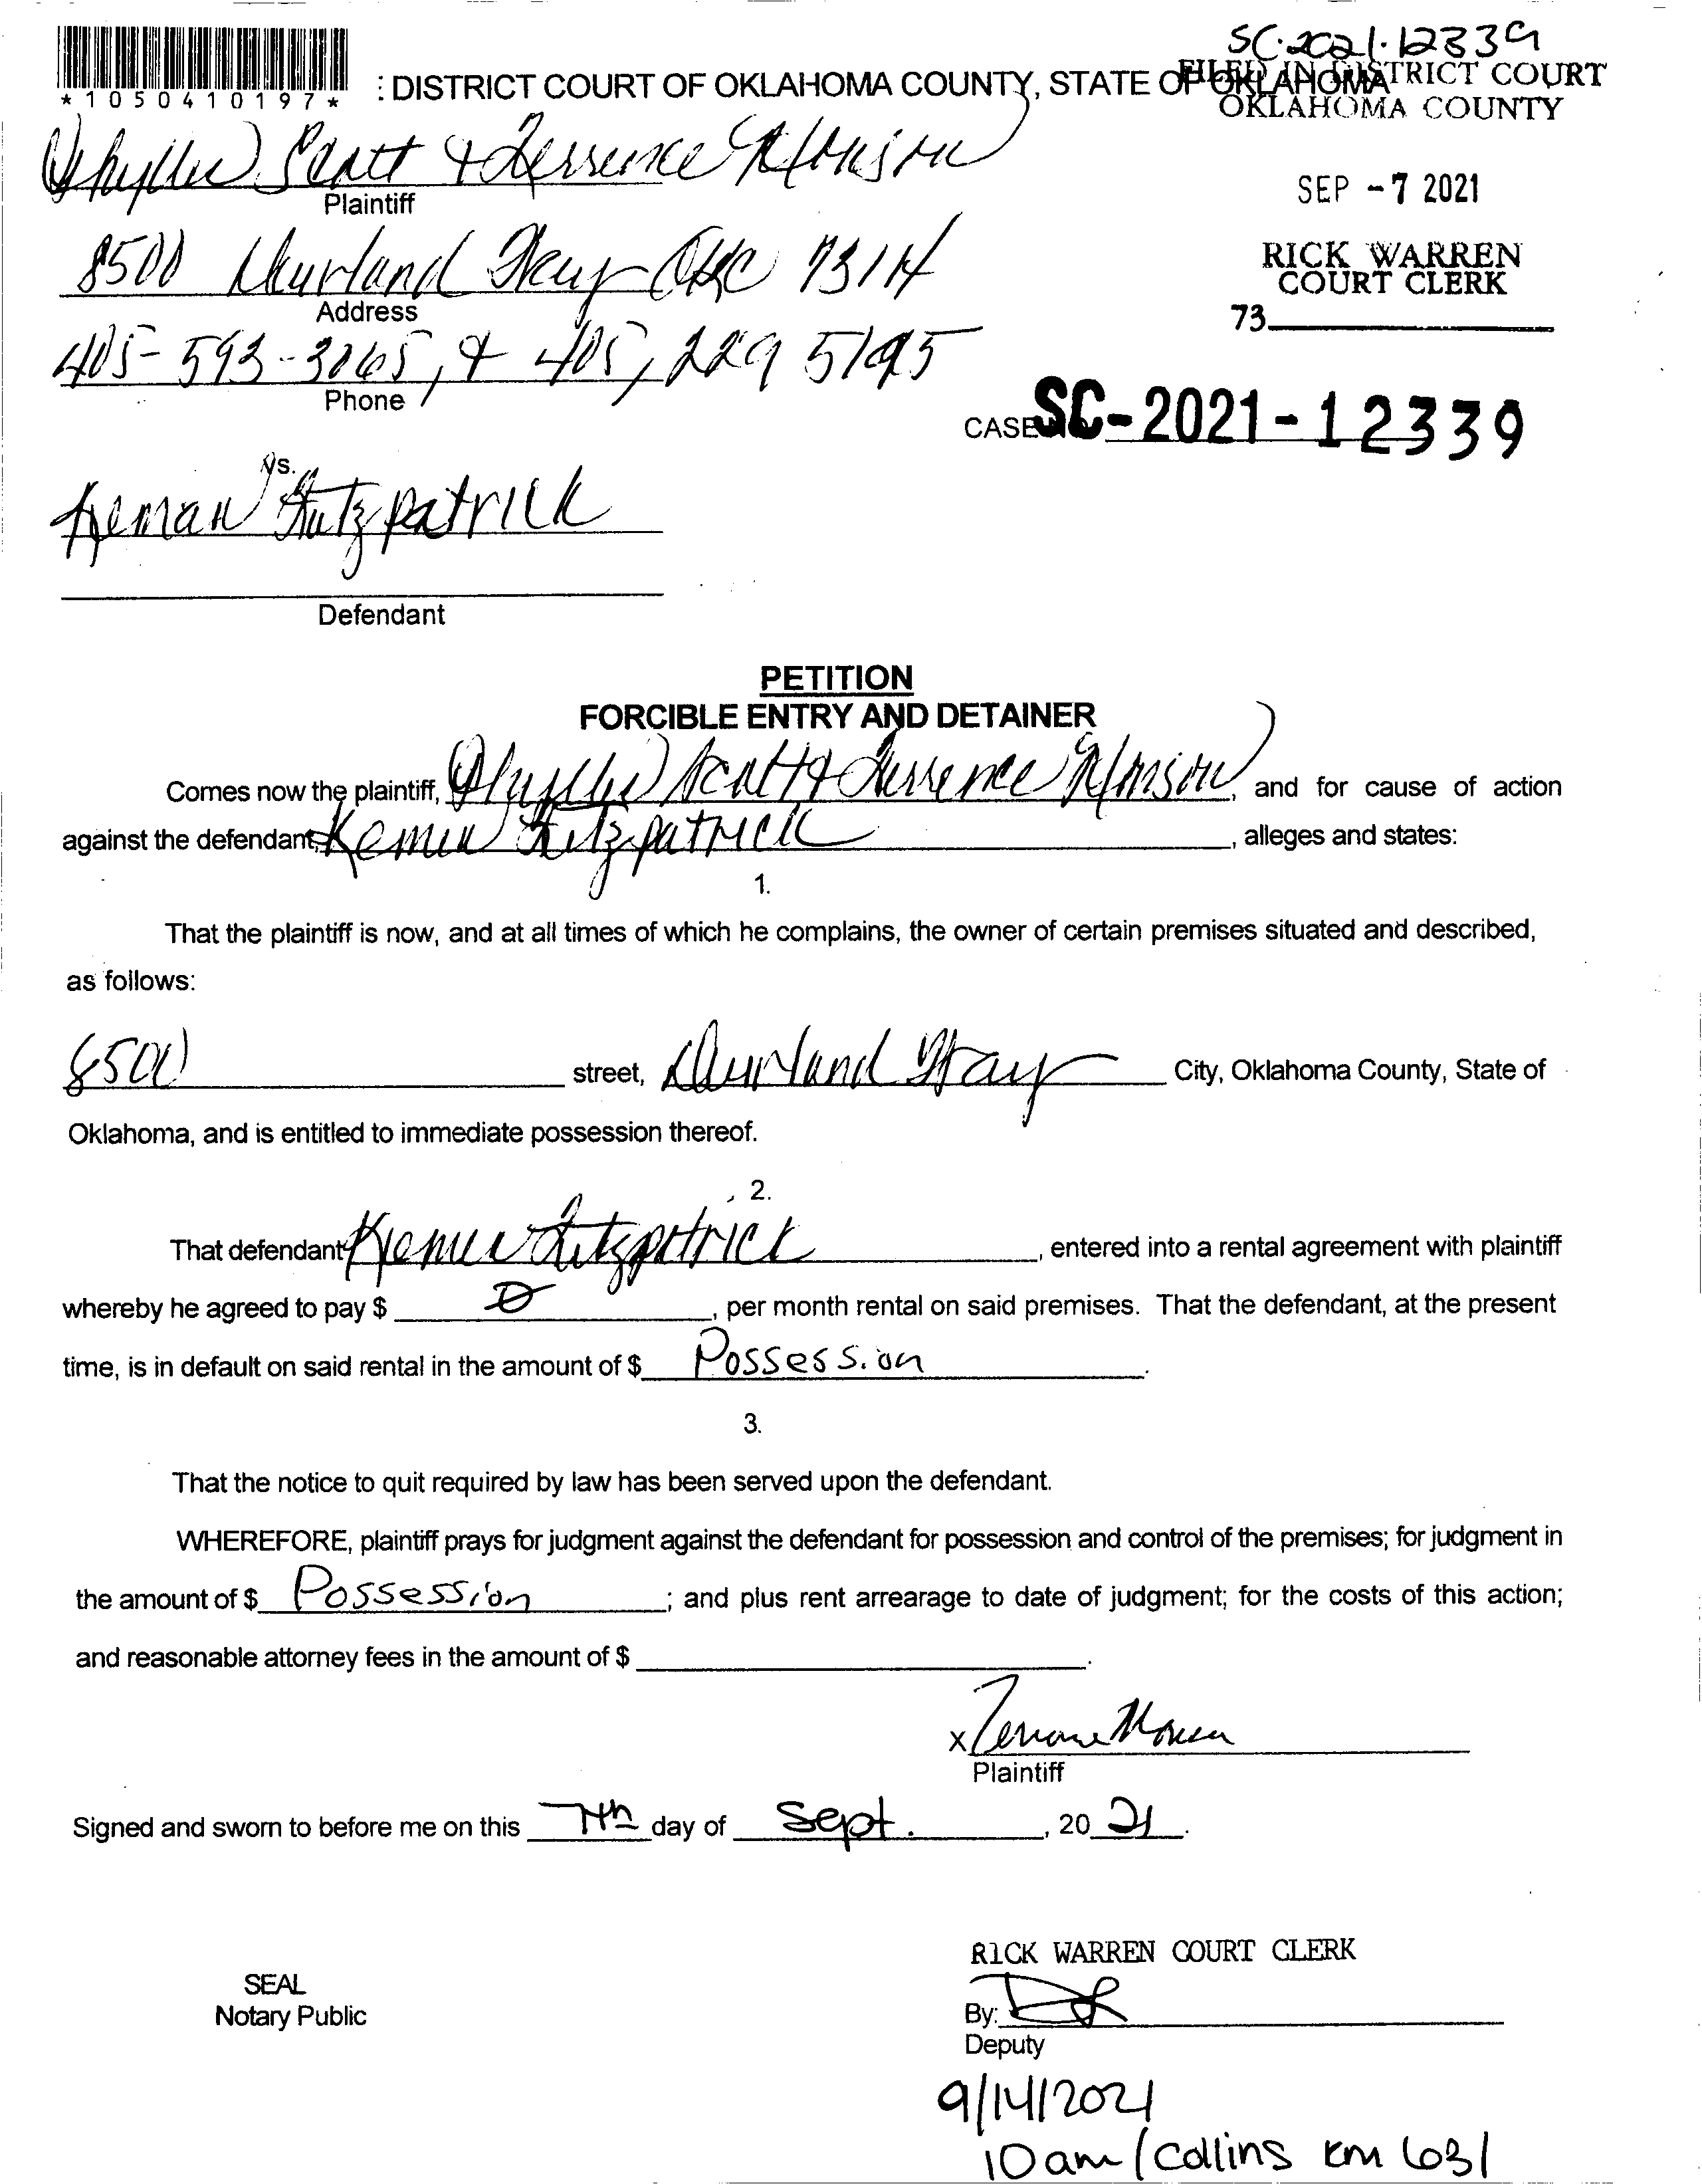 SC-2021-12339
*1050410197*
: DISTRICT COURT OF OKLAHOMA COUNTY, STATE OF OKLAHOMA
FILED IN DISTRICT COURT
OKLAHOMA COUNTY
Scott &
Plaintiff
SEP -7 2021
8500 Way OKC
Address
RICK WARREN
COURT CLERK
73
405-593-3065, & 405, 229 5195
Phone
CASE SC-2021-12339
vs.
Fitzpatrick
Defendant
PETITION
FORCIBLE ENTRY AND DETAINER
Comes now the plaintiff, Scott & , and for cause of action
against the defendant, Fitzpatrick , alleges and states:
1.
That the plaintiff is now, and at all times of which he complains, the owner of certain premises situated and described,
as follows:
8500 street, Way City, Oklahoma County, State of
Oklahoma, and is entitled to immediate possession thereof.
2.
That defendant Fitzpatrick , entered into a rental agreement with plaintiff
whereby he agreed to pay $ 0 , per month rental on said premises. That the defendant, at the present
time, is in default on said rental in the amount of $ Possession .
3.
That the notice to quit required by law has been served upon the defendant.
WHEREFORE, plaintiff prays for judgment against the defendant for possession and control of the premises; for judgment in
the amount of $ Possession ; and plus rent arrearage to date of judgment; for the costs of this action;
and reasonable attorney fees in the amount of $ .
x
Plaintiff
Signed and sworn to before me on this 7th day of Sept. , 20 21 .
RICK WARREN COURT CLERK
SEAL
Notary Public
By:
Deputy
9/14/2021
10 am / Collins rm 631